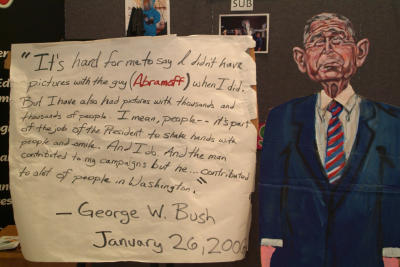 SUB
"It's hard for me to say I didn't have
pictures with the guy (Abramoff) when I did.
But I have also had pictures with thousands and
thousands of people. I mean, people-- it's part
of the job of the President to shake hands with
people and smile. And I do. And the man
contributed to my campaigns but he... contributed
to alot of people in Washington."
— George W. Bush
January 26, 2006